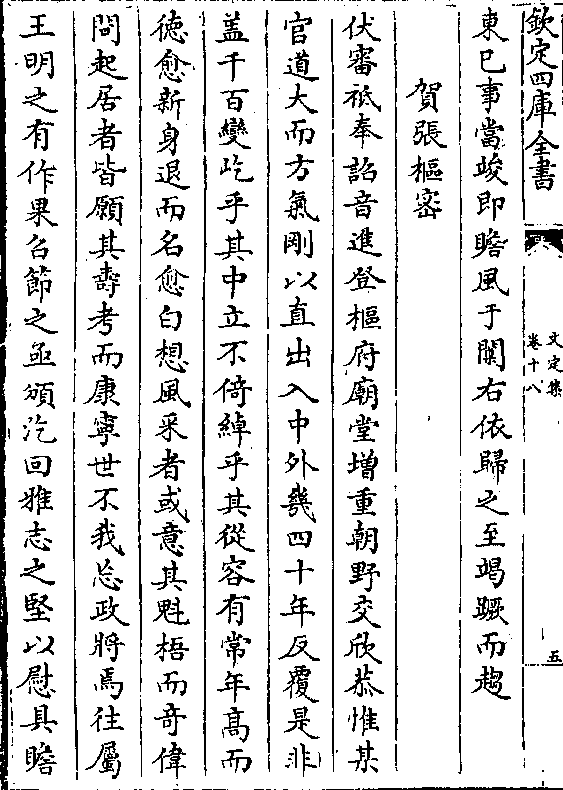 欽定四庫全書
文定集
卷十八
五
東巳事當竣即瞻風于關右依歸之至竭蹶而趨
賀張樞密
伏審祗奉詔音進登樞府廟堂增重朝野交欣恭惟某
官道大而方氣剛以直出入中外幾四十年反覆是非
盖千百變屹乎其中立不倚綽乎其從容有常年髙而
徳愈新身退而名愈白想風采者或意其魁梧而竒偉
問起居者皆願其壽考而康寧世不我忘政將焉往屬
王明之有作果召節之亟頒汔回雅志之堅以慰具瞻